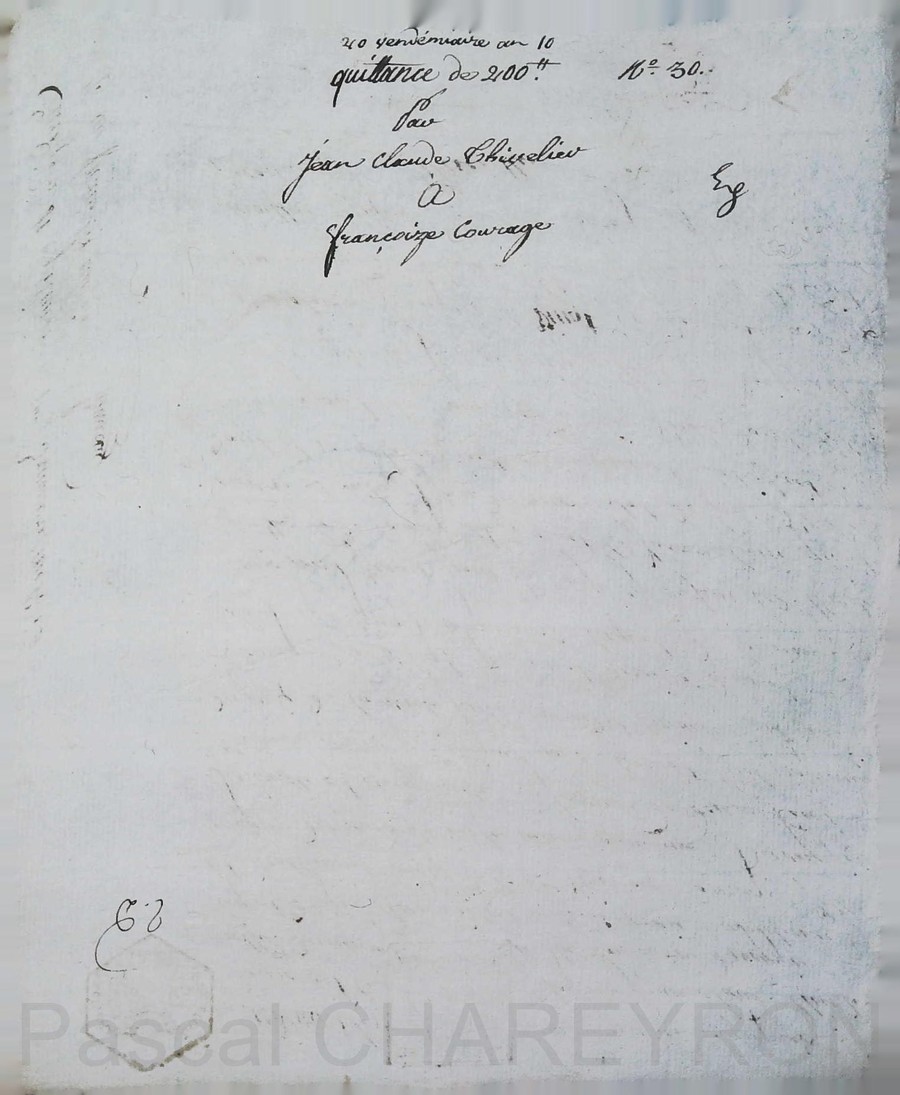 20 vendémiaire an 10
quittance de 200 ₶. N.º 30.
Par
Jean Claude Thivelier
A
françoize Courage
Eg
Pascal CHAREYRON